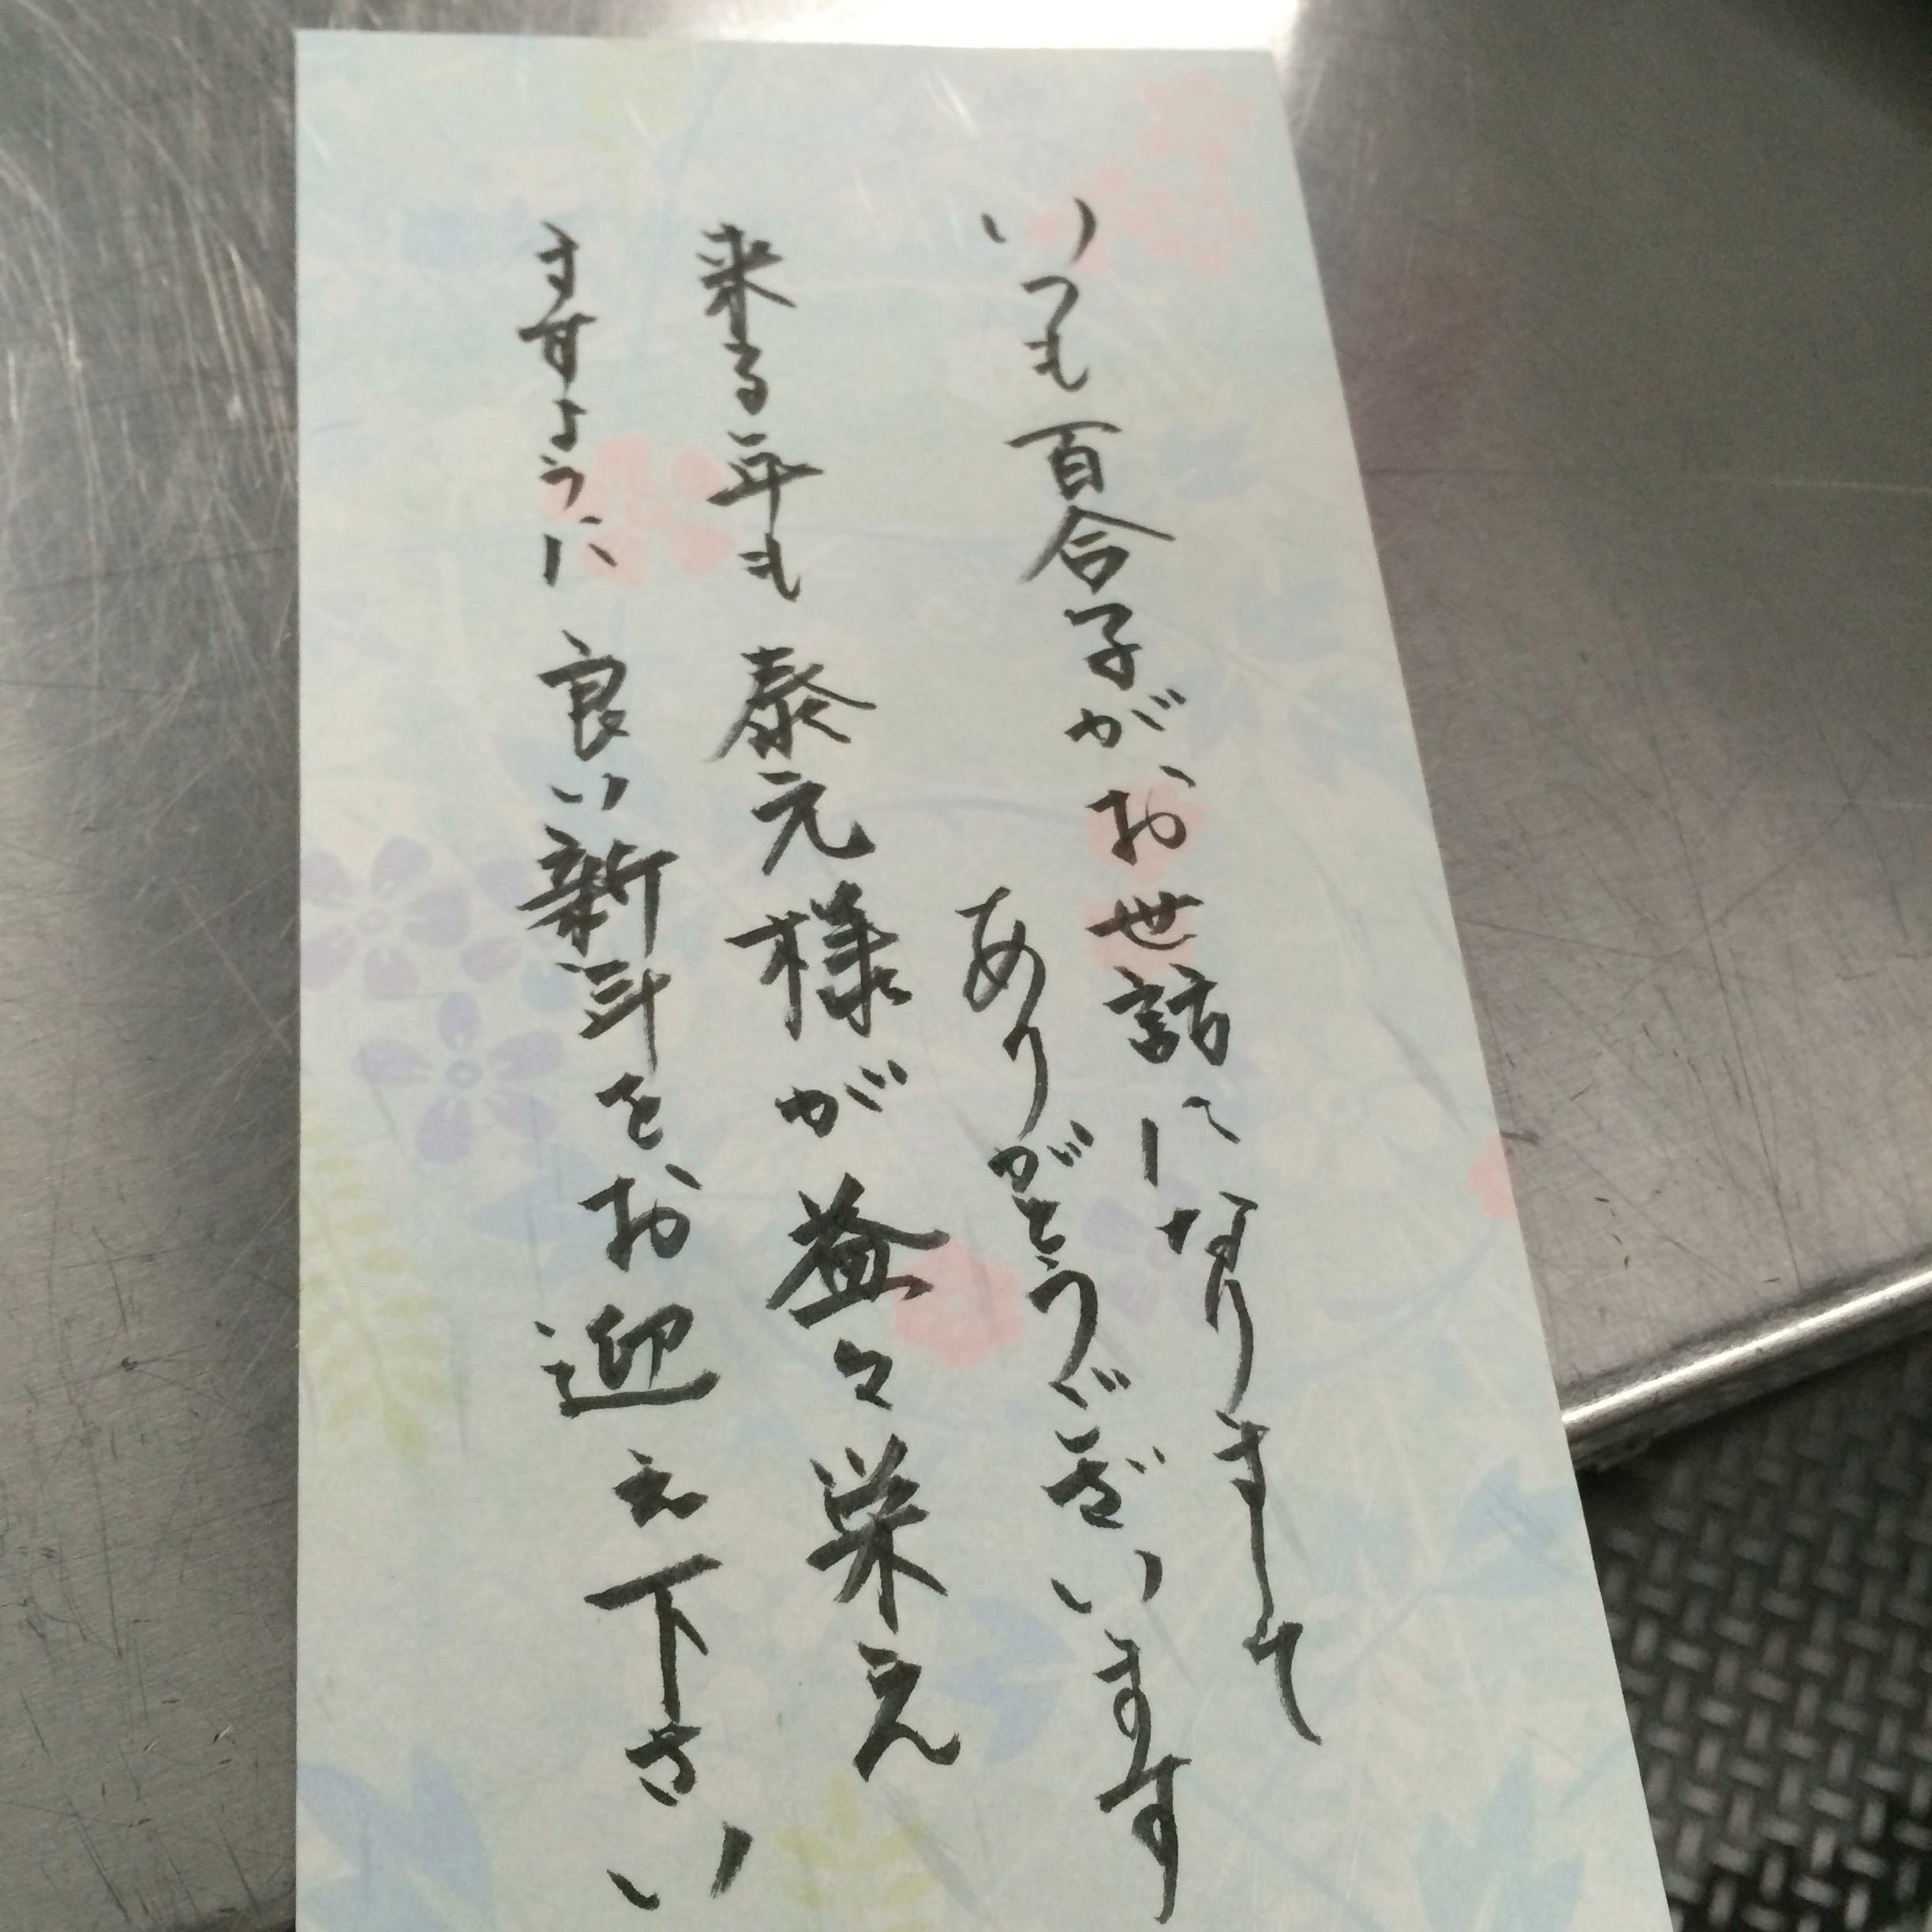 いつも百合子がお世話になりまして
ありがとうございます
来る年も泰元様が益々栄え
ますように良い新年をお迎え下さい